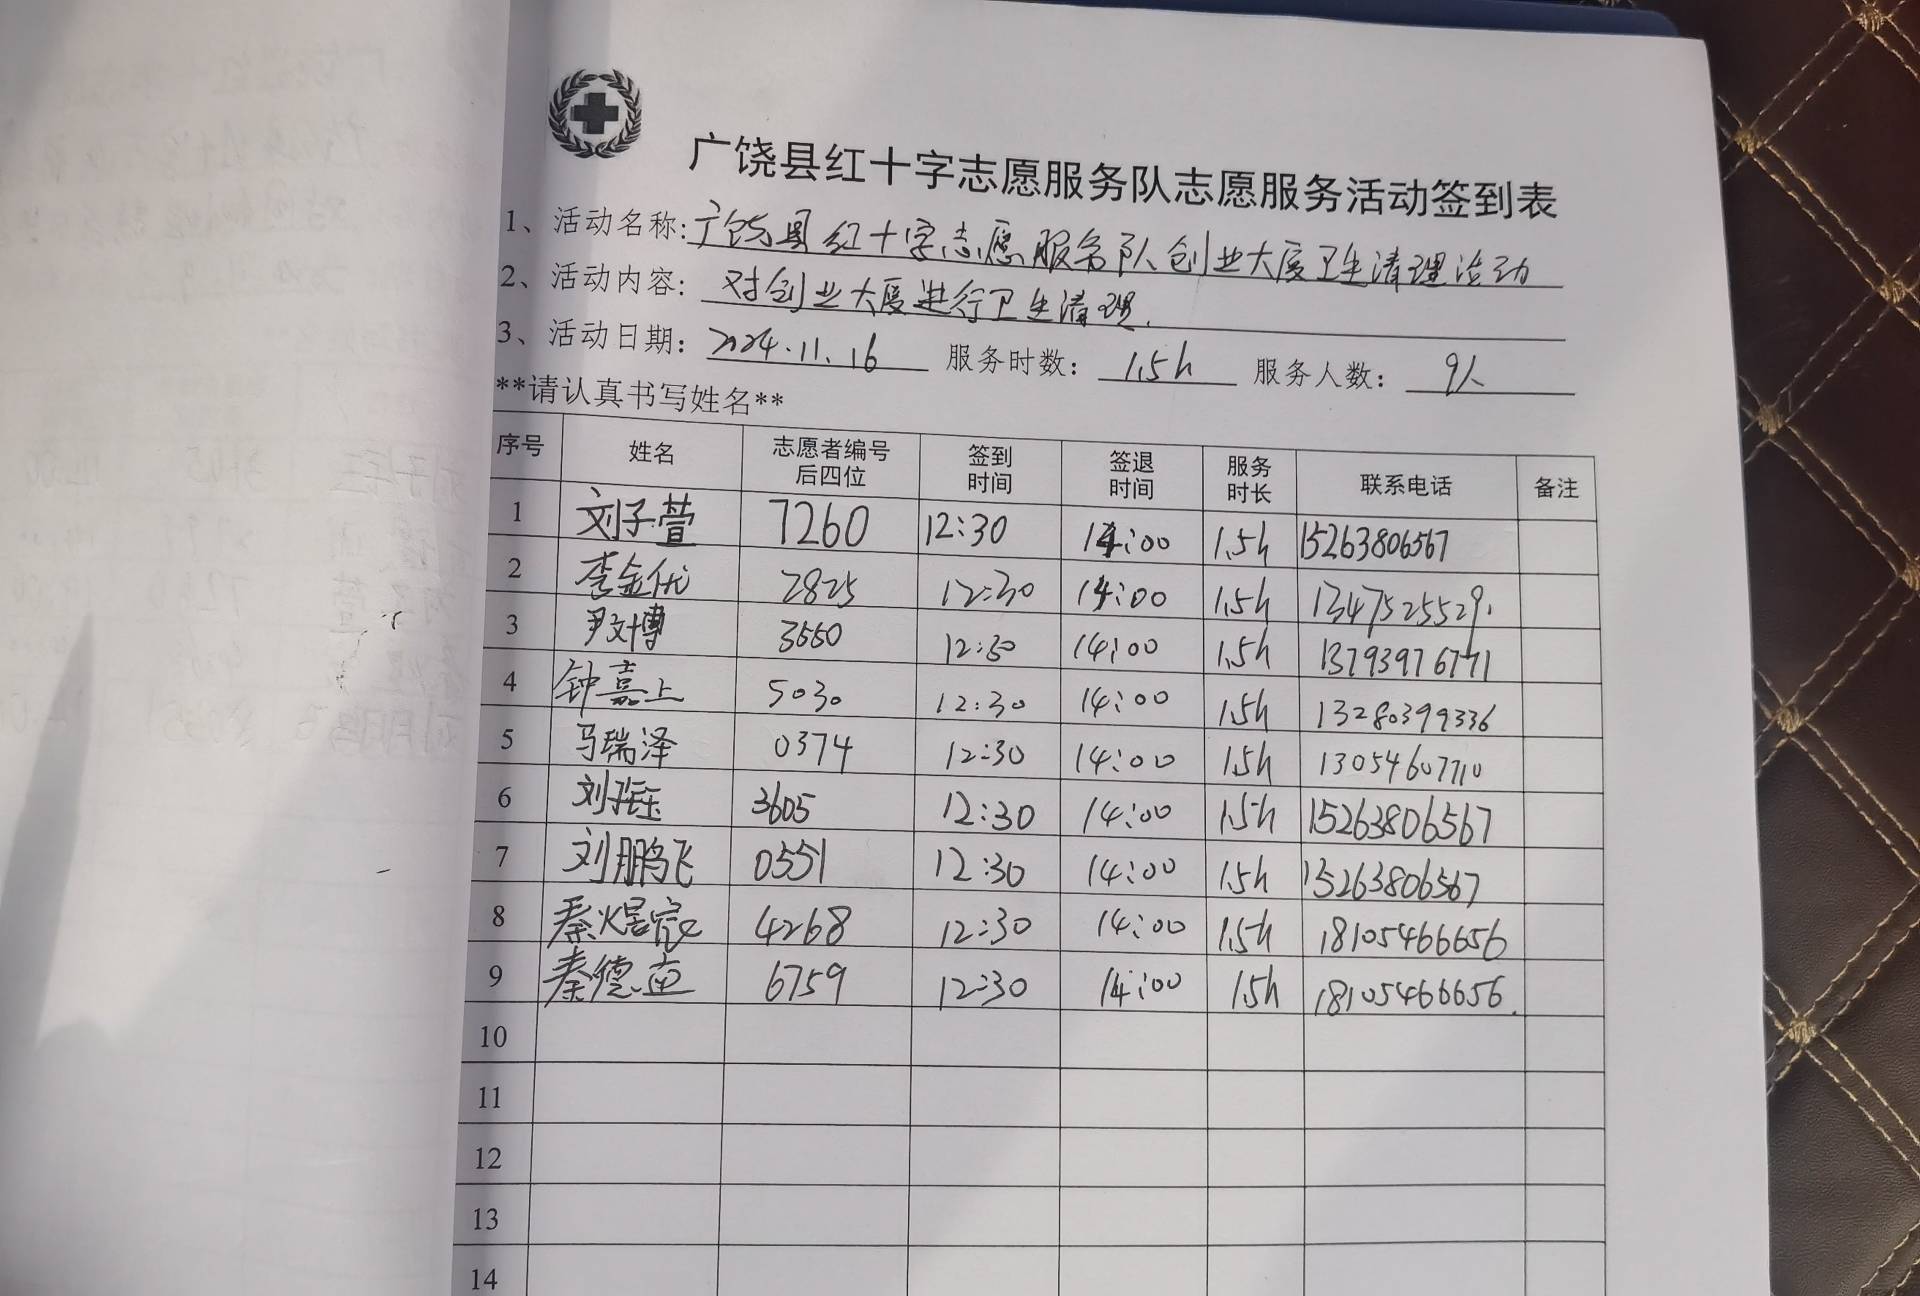 广饶县红十字志愿服务队志愿服务活动签到表
1、活动名称:广饶县红十字志愿服务队创业大厦卫生清理活动
2、活动内容: 对创业大厦进行卫生清理.
3、活动日期: 2024.11.16 服务时数: 1.5h 服务人数: 9人
**请认真书写姓名**
序号 姓名 志愿者编号后四位 签到时间 签退时间 服务时长 联系电话 备注
1 刘子萱 7260 12:30 14:00 1.5h 15263806567
2 李金优 2825 12:30 14:00 1.5h 13475255291
3 尹文博 3550 12:30 14:00 1.5h 13793976771
4 钟嘉上 5030 12:30 14:00 1.5h 13280399336
5 马瑞泽 0374 12:30 14:00 1.5h 13054607710
6 刘子钰 3605 12:30 14:00 1.5h 15263806567
7 刘鹏飞 0551 12:30 14:00 1.5h 15263806567
8 秦煜宸 4268 12:30 14:00 1.5h 18105466656
9 秦德 6759 12:30 14:00 1.5h 18105466656.
10
11
12
13
14